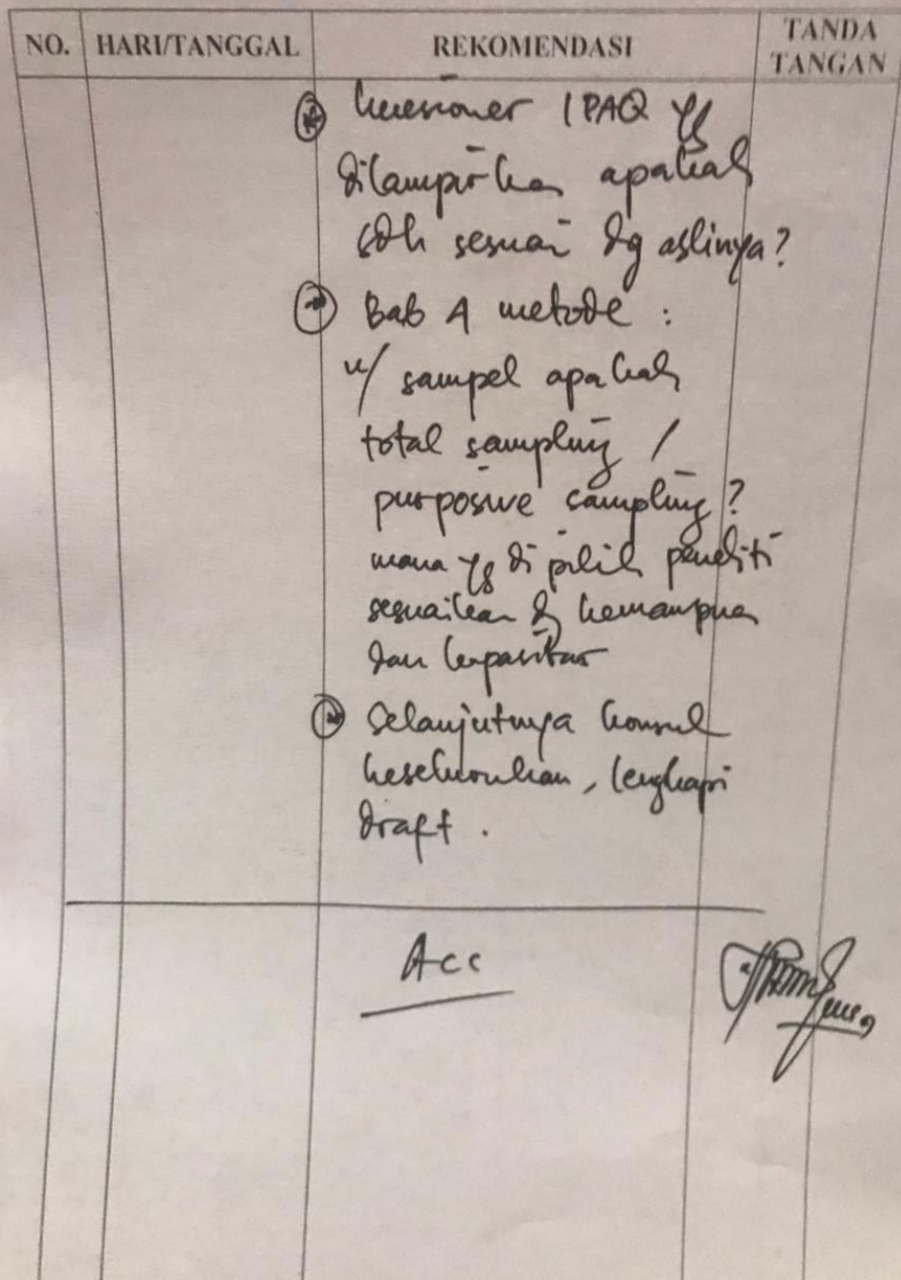 NO. HARI/TANGGAL REKOMENDASI TANDA TANGAN
kuesioner IPAQ yg
dilampirkan apakah
sdh sesuai dg aslinya?
Bab 4 metode :
u/ sampel apakah
total sampling /
purposive sampling?
mana yg di pilih peneliti
sesuaikan dg kemampuan
dan kapasitas
Selanjutnya konsul
keseluruhan, lengkapi
draft.
Acc